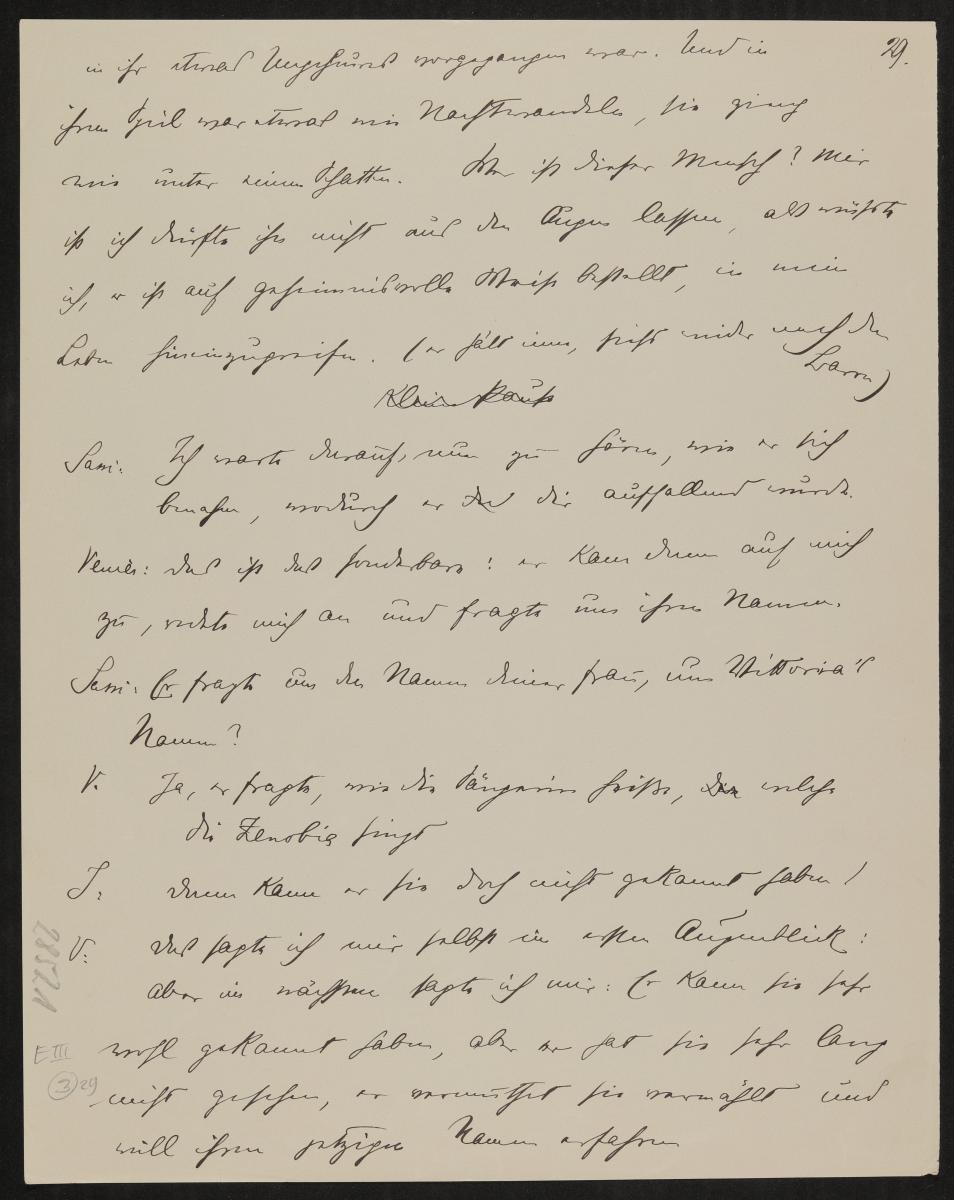 29.
in ihr etwas Ungeheures vorgegangen war. Und in
ihrem Spiel war etwas wie Nachtwandeln, sie gieng
wie unter einem Schatten. Wer ist dieser Mensch? Mir
ist ich dürfte ihn nicht aus den Augen lassen, als wüsste
ich, er ist auf geheimnisvolle Weise bestellt, in mein
Leben hineinzugreifen. (er hält inne, sieht wieder nach den
Kleine Pause
Sassi: Ich warte darauf, nun zu hören, wie er sich
benahm, wodurch er dir auffallend wurde.
Venier: das ist das sonderbare: er kam dann auf mich
zu, redete mich an und fragte um ihren Namen.
Sassi: Er fragte um den Namen deiner Frau, um Vittoria's
Namen?
V. Ja, er fragte, wie die Sängerin heiße, welche
die Zenobia singt
S: dann kann er sie doch nicht gekannt haben!
V: das sagte ich mir selbst im ersten Augenblick:
aber im nächsten sagte ich mir: Er kann sie sehr
wohl gekannt haben, aber er hat sie sehr lang
nicht gesehen, er vermuthet sie vermählt und
will ihren jetzigen Namen erfahren
E III
3 29